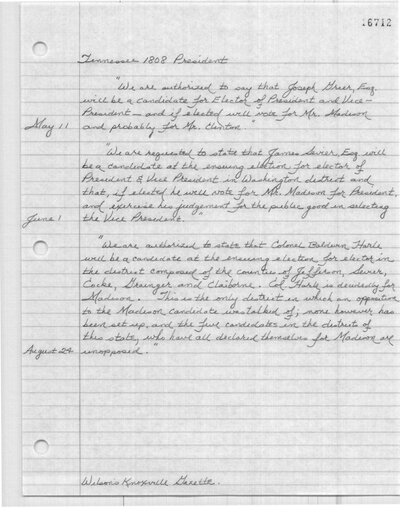 16712
Tennessee 1808 President
"We are authorised to say that Joseph Greer, Esq.
will be a candidate for Elector of President and Vice-
President — and if elected will vote for Mr. Madison
May 11 and probably for Mr. Clinton."
"We are requested to state that James Sevier, Esq. will
be a candidate at the ensuing election for elector of
President & Vice President in Washington district and
that, if elected he will vote for Mr. Madison for President,
and exercise his judgement for the public good in selecting
June 1 the Vice President."
"We are authorised to state that Colonel Baldwin Harle
will be a canidate at the ensuing election for elector in
the district composed of the counties of Jefferson, Sevier,
Cocke, Grainger and Claiborne. Col. Harle is decidedly for
Madison. "This is the only district in which an opposition
to the Madison candidate was talked of; none however has
been set up, and the five candidates in the districts of
this state, who have all declared themselves for Madison are
August 24 unopposed."
Wilson's Knoxville Gazette.